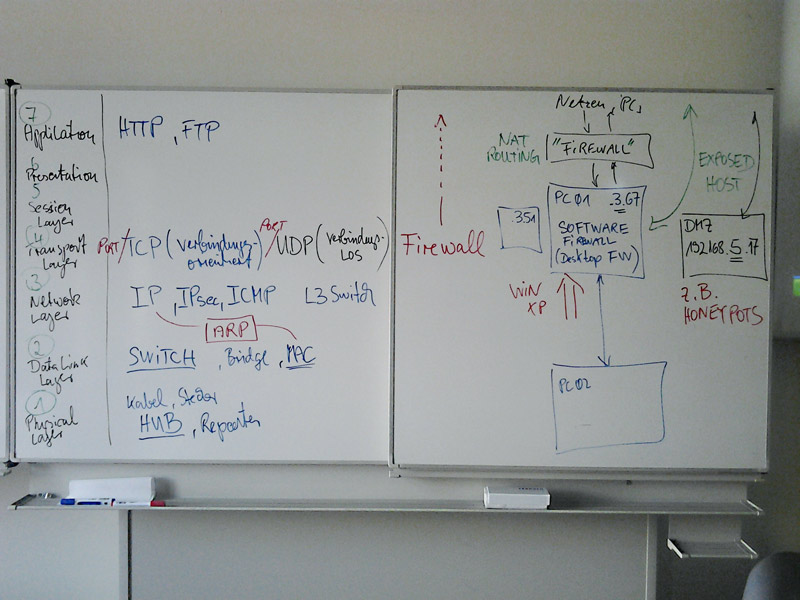 7
Application
HTTP, FTP
6
Presentation
5
Session
Layer
4
Transport
Layer
PORT/TCP (verbindungs-
orientiert)
PORT/UDP (verbindungs-
LOS)
3
Network
Layer
IP, IPsec, ICMP L3 Switch
ARP
2
Data Link
Layer
SWITCH, Bridge, MAC
1
Physical
Layer
Kabel, Stecker
HUB, Repeater
Firewall
Netzen, PC
NAT
ROUTING
"FIREWALL"
EXPOSED
HOST
.351
PC01 .3.67
SOFTWARE
FIREWALL
(Desktop FW)
WIN
XP
DMZ
192.168.5.17
z.B.
HONEYPOTS
PC02